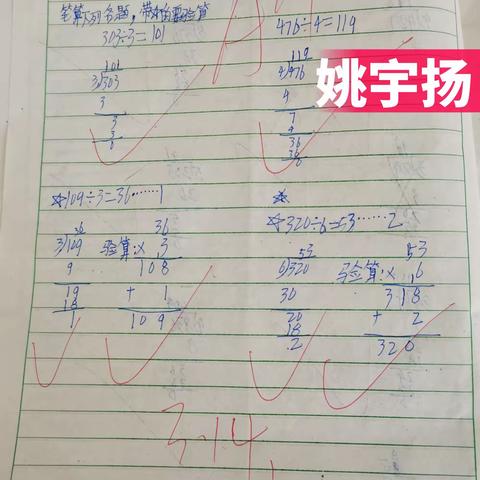 笔算下列各题，带☆的要验算
303÷3=101
476÷4=119
姚宇扬
101
3√303
3
3
3
0
119
4√476
4
7
4
36
36
0
☆109÷3=36……1
☆320÷6=53……2
36
3√109
9
19
18
1
验算: 36
× 3
108
+ 1
109
53
6√320
30
20
18
2
验算: 53
× 6
318
+ 2
320
3.14